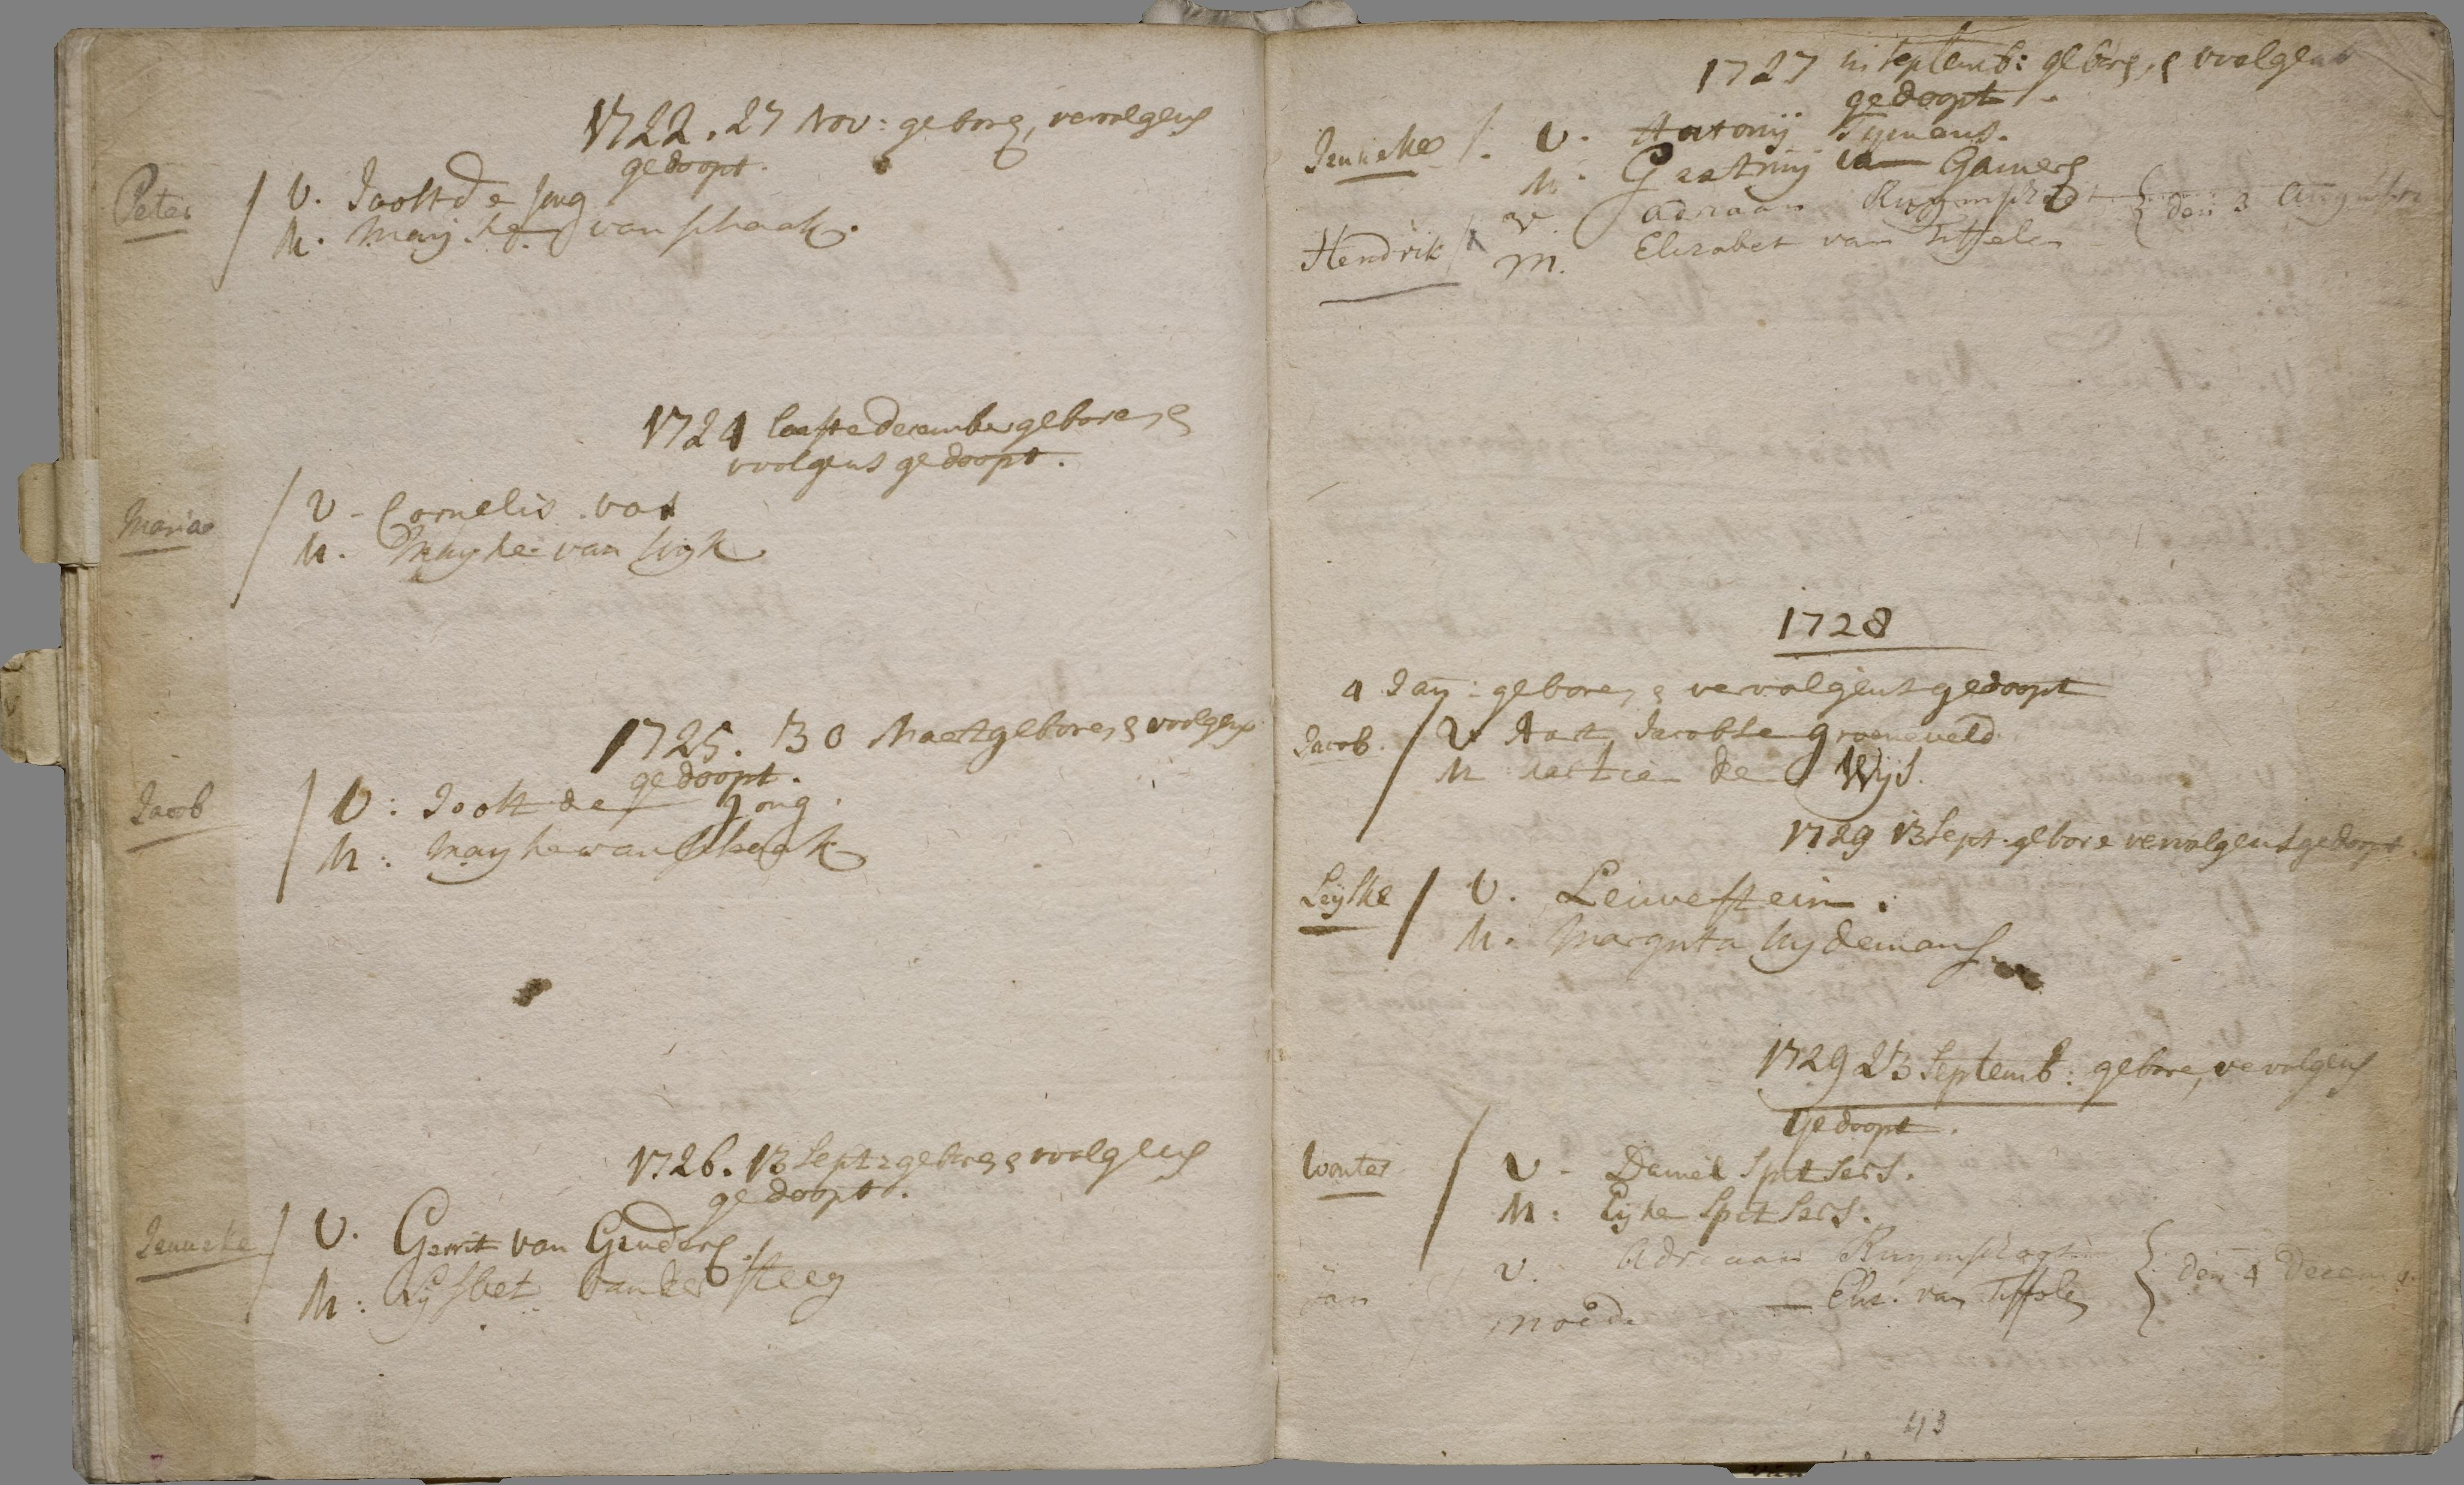 1722. 27 Nov: gebore, vervolgens
gedoopt.
Peter / V. Joost de Jong
M. Mayke van schaak.
1724 laaste december geboren e
vvolgens gedoopt.
Maria / V - Cornelis vas
M. Mayke van wijk
1725. 30 Maert geboren e vvolgens
gedoopt.
Jacob / V: Joost de Jong.
M: Mayke van schaak
1726. 13 Sept: geboren e vvolgens
gedoopt.
Jenneke / V. Gerrit van Genders
M: Lijsbet van der steeg
1727 in Septemb: gebore, e vvolgens
gedoopt.
Jenneke /. V. Antonij Tijmans.
M. Geertruij Gamers
Hendrik / V adriaan den 3 Augustus
M. Elisabet van Tiffelen
1728
4 Jan: geboren e vervolgens gedoopt
Jacob. / V Aart Jacobse groeneveld
M aartie de Wijs.
1729 13 Sept. gebore vervolgens gedoopt.
Leijske / V. Leuwestein.
M. Margrita Huydemans
1729 23 Septemb: gebore, vervolgens
gedoopt.
Wouter / V - Daniel Spitsers.
M: Eijke Spitsers.
jan V. Adriaan den 4 Decem
moeder Elis. van Tiffelen
43